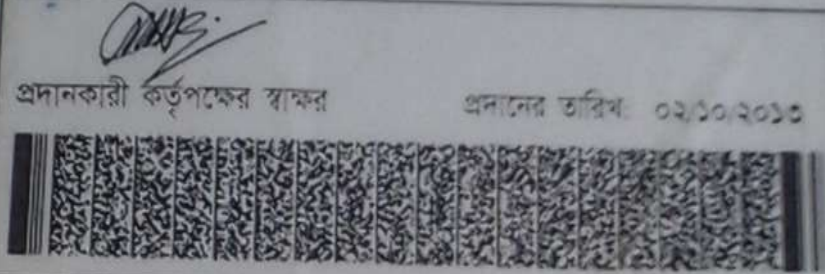 প্রদানকারী কর্তৃপক্ষের স্বাক্ষর প্রদানের তারিখ: ০২/১০/২০১৩